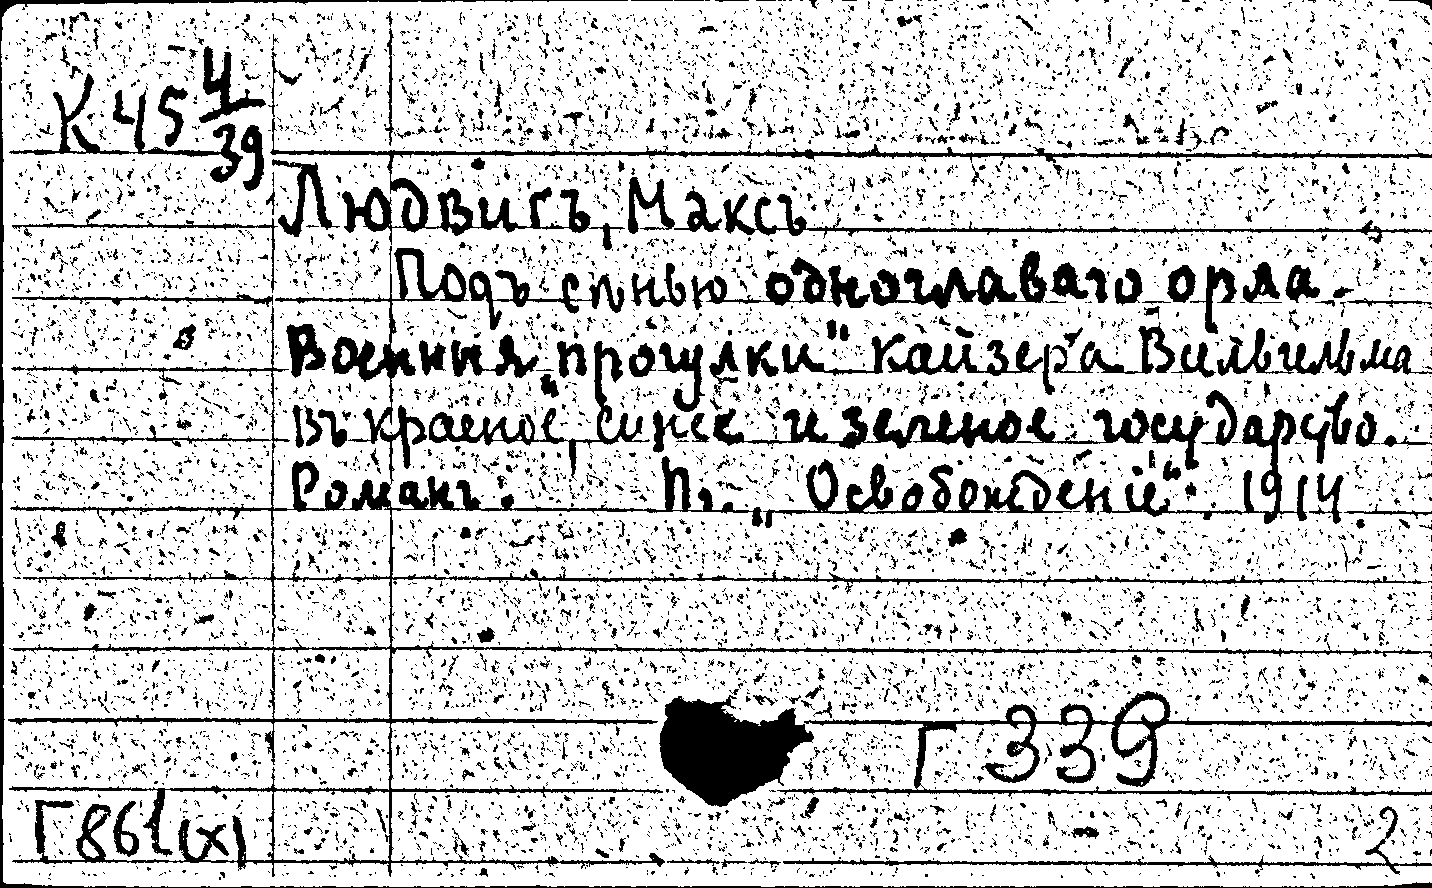 К 45 4/39
Людвигъ, Максъ
Подъ сѣнью одноглаваго орла.
Военныя „прогулки" кайзера Вильгельма
въ красное, синее и зеленое государство.
Романъ. Пг. „Освобожденіе". 1914.
Г 339
Г861(х)
2